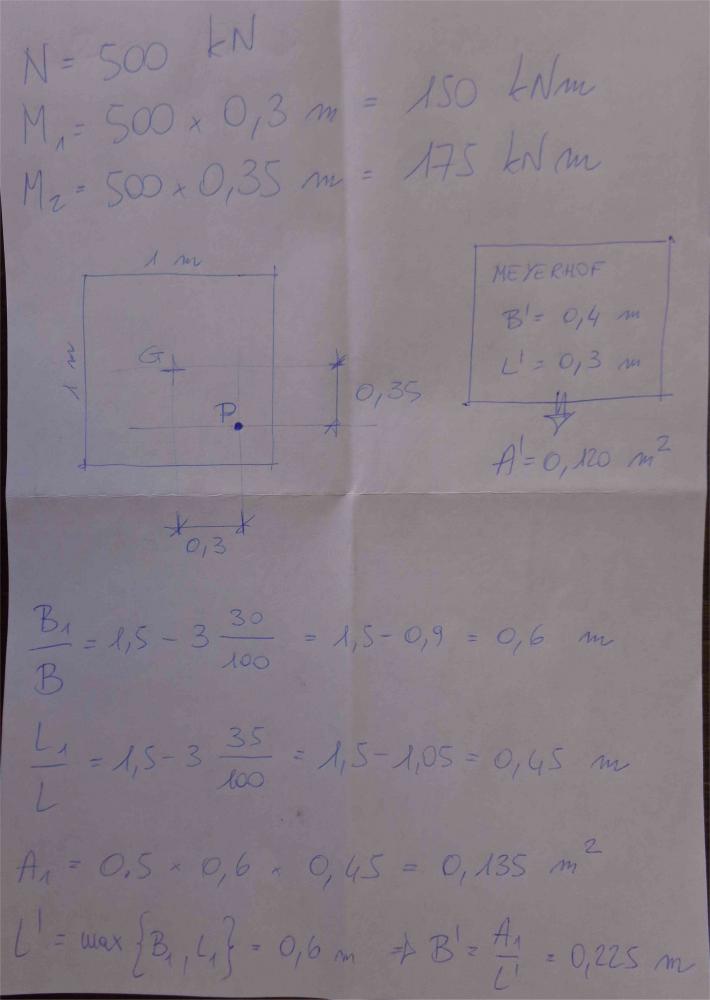 N = 500 kN
M₁ = 500 × 0,3 m = 150 kNm
M₂ = 500 × 0,35 m = 175 kNm
1 m
1 m
G
P
0,35
0,3
MEYERHOF
B' = 0,4 m
L' = 0,3 m
A' = 0,120 m²
B₁/B = 1,5 - 3 30/100 = 1,5 - 0,9 = 0,6 m
L₁/L = 1,5 - 3 35/100 = 1,5 - 1,05 = 0,45 m
A₁ = 0.5 × 0,6 × 0,45 = 0,135 m²
L' = max {B₁, L₁} = 0,6 m ⇒ B' = A₁/L' = 0,225 m